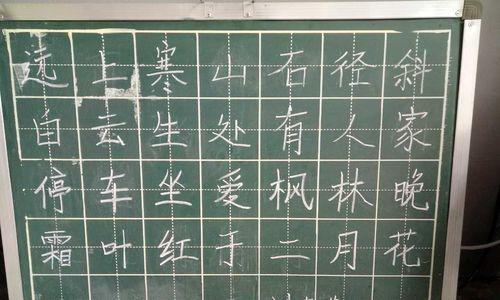 远上寒山石径斜
自云生处有人家
停车坐爱枫林晚
霜叶红于二月花